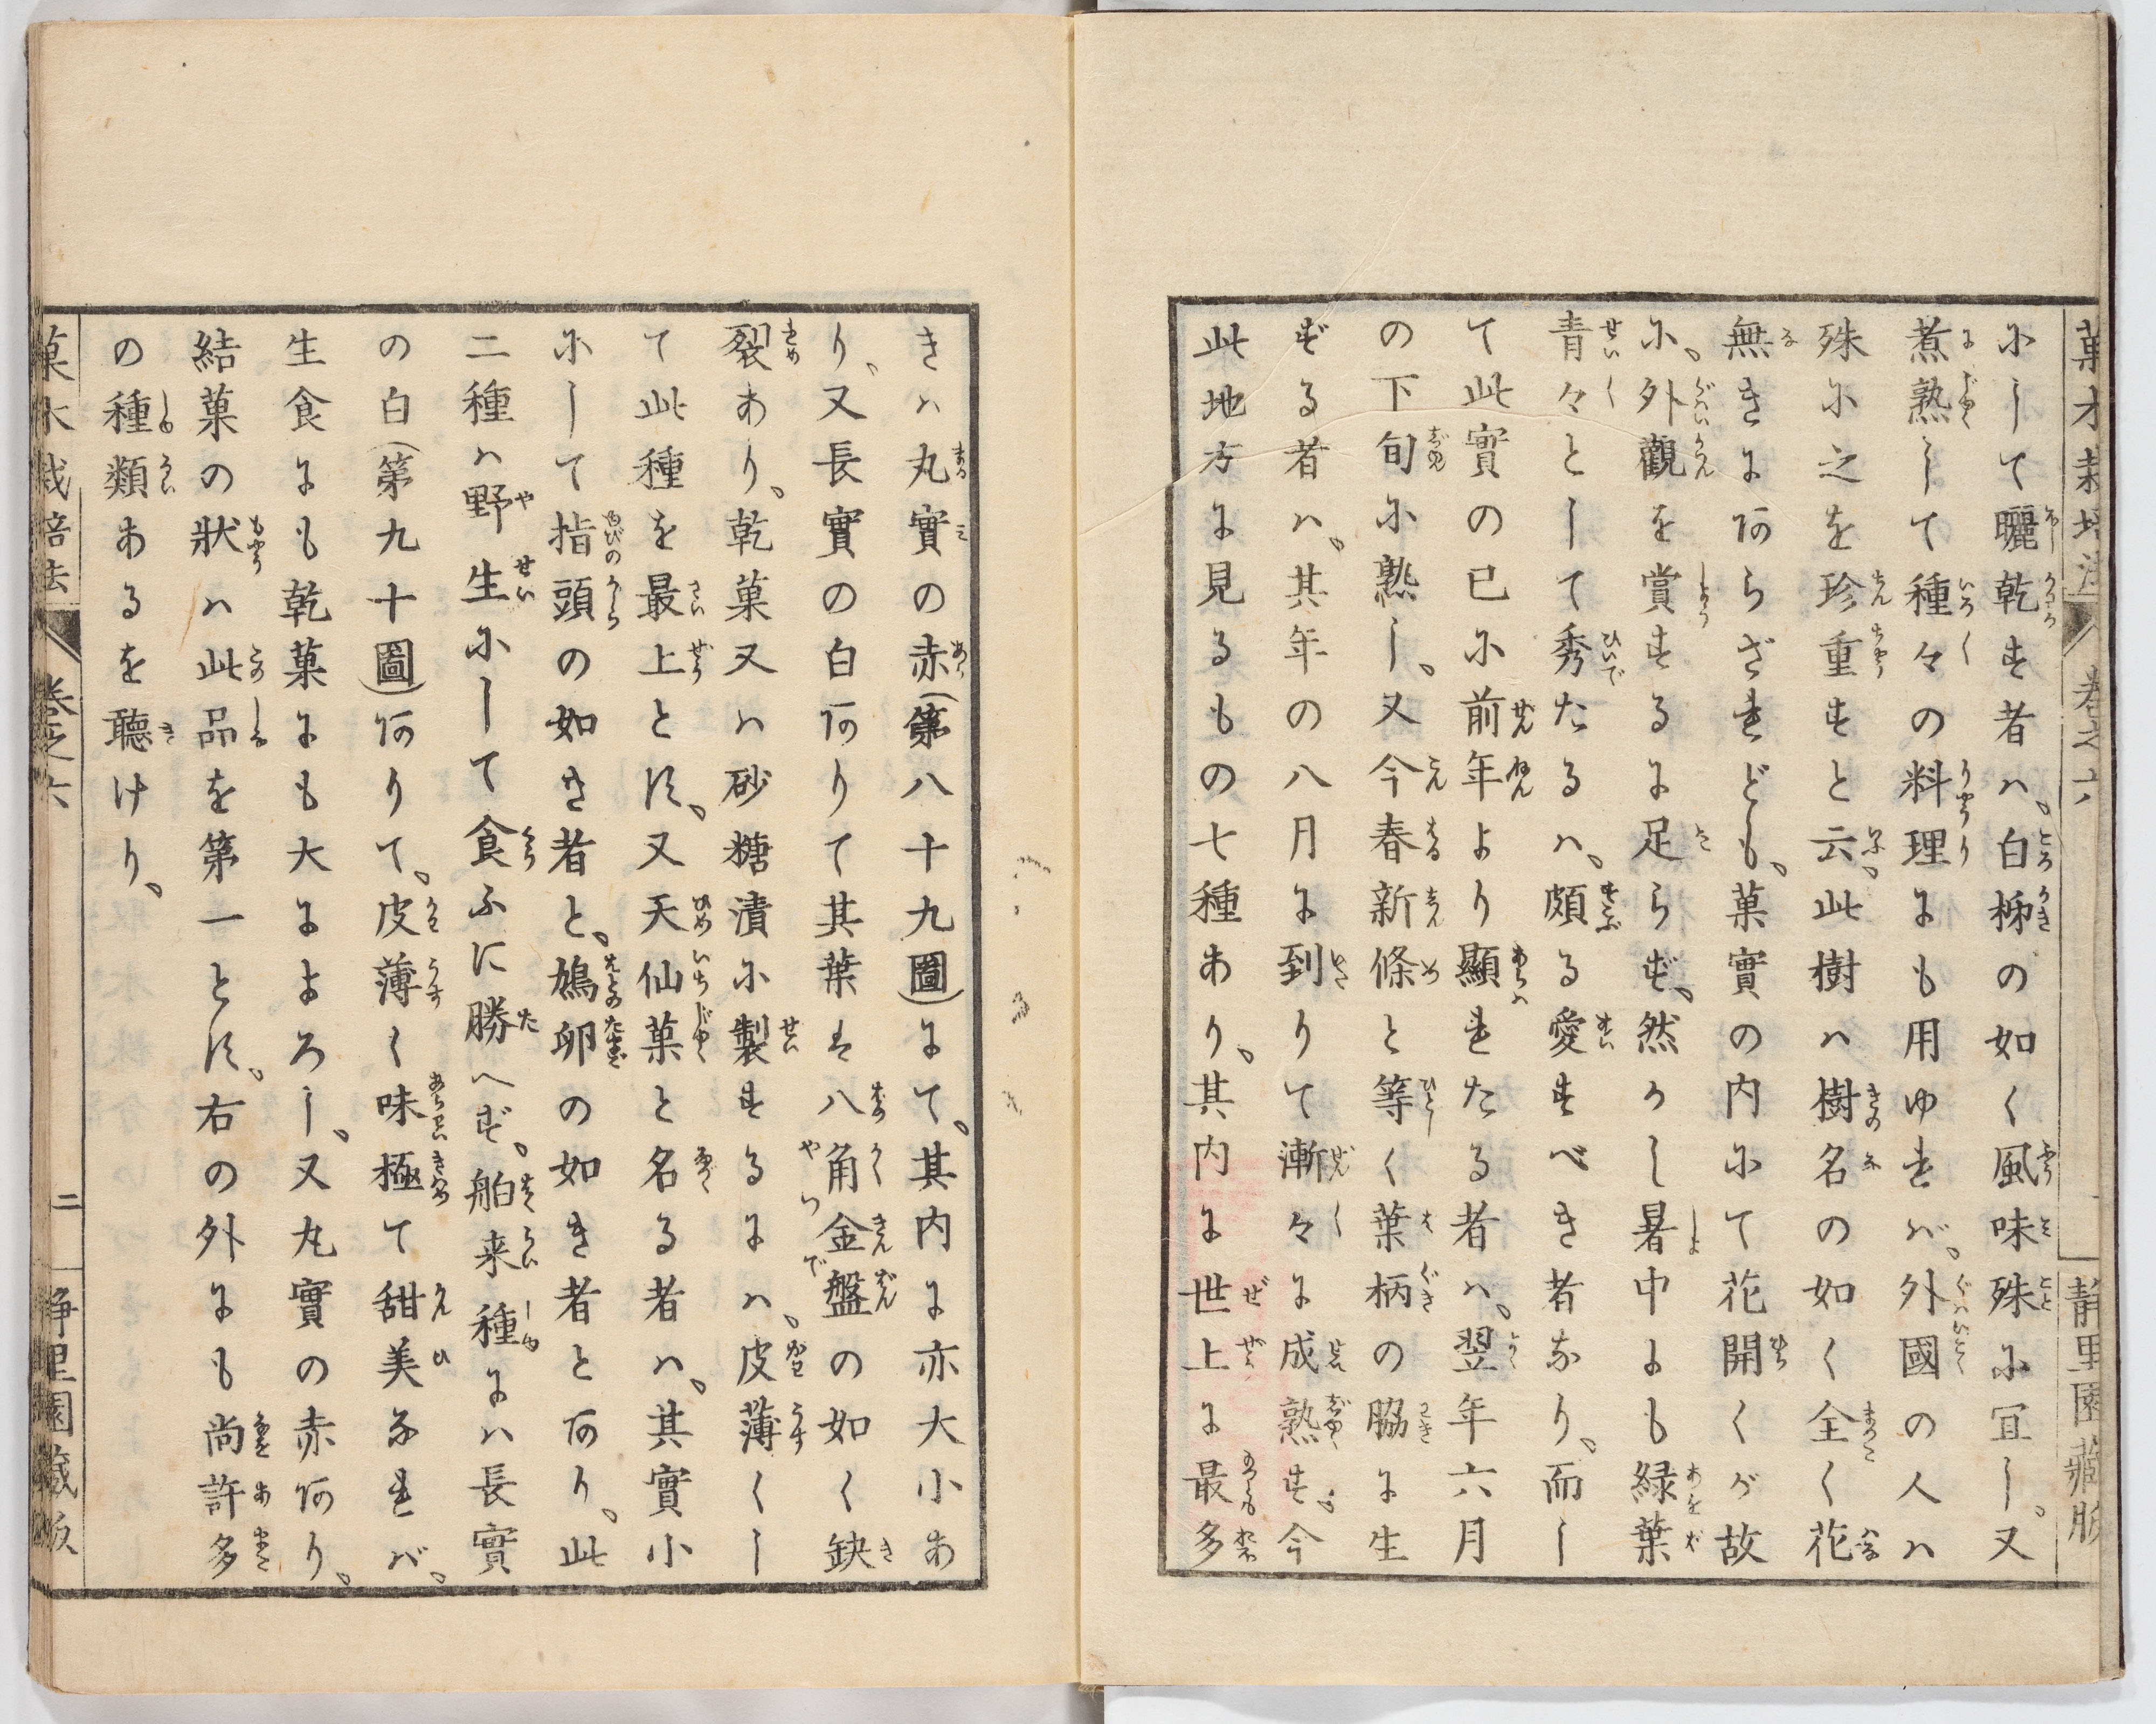 菓木栽培法 巻之六 静里園藏版
にして曬乾す者ハ、白柹の如く風味殊に宜し。又
煮熟して種々の料理にも用ゆれバ、外國の人ハ
殊に之を珍重すと云。此樹ハ樹名の如く全く花
無きにあらざれども、菓實の内にて花開くが故
に、外觀を賞するに足らず、然かし暑中にも緑葉
青々として秀たるハ、頗る愛すべき者なり、而し
て此實の已に前年より顯れたる者ハ、翌年六月
の下旬に熟し、又今春新條と等く葉柄の脇に生
ずる者ハ、其年の八月に到りて漸々に成熟す。今
此地方に見るもの七種あり、其内に世上に最多
きハ丸實の赤(第八十九圖)にて、其内に亦大小あ
り、又長實の白ありて其葉は八角金盤の如く缺
裂あり、乾菓又ハ砂糖漬に製するにハ、皮薄くし
て此種を最上とす、又天仙菓と名る者ハ、其實小
にして指頭の如き者と、鳩卵の如き者とあり、此
二種ハ野生にして食ふに勝へず、舶来種にハ長實
の白(第九十圖)ありて、皮薄く味極て甜美なれバ、
生食にも乾菓にも大によろし、又丸實の赤あり、
結菓の狀ハ此品を第一とす。右の外にも尚許多
の種類あるを聽けり、
菓木栽培法 巻之六 二 静里園藏版